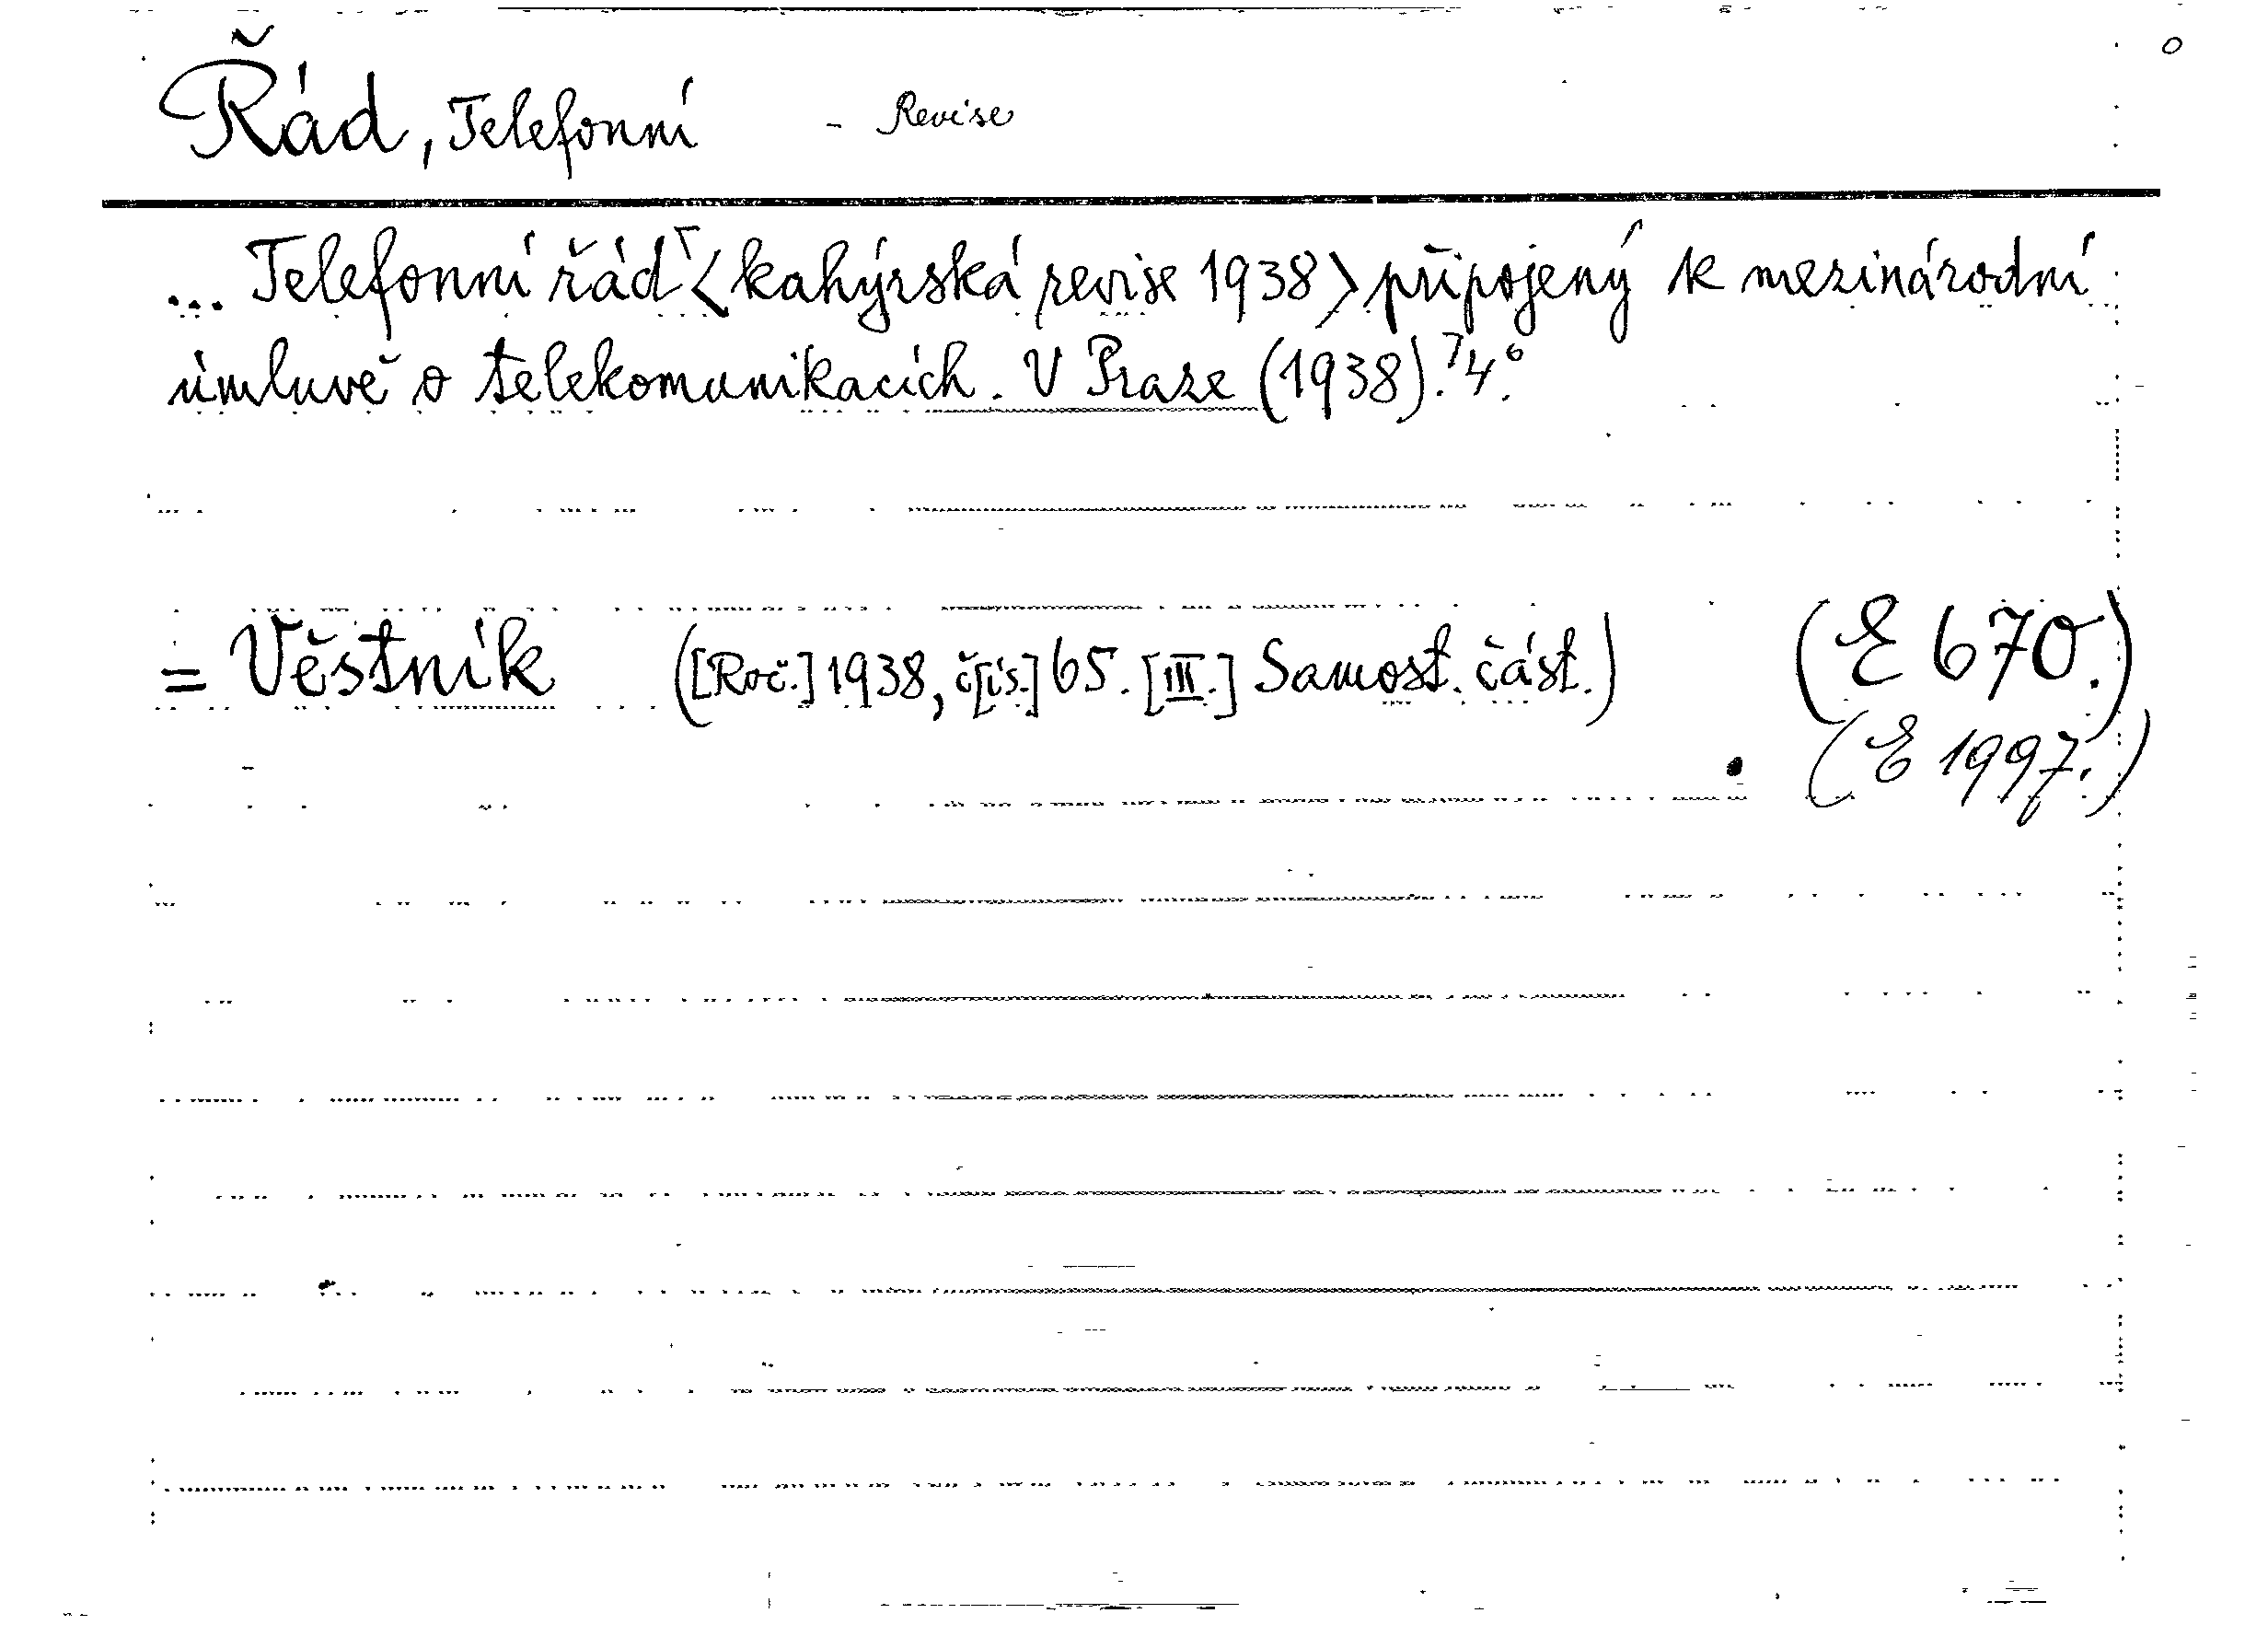 Řád, Telefonní - Revise
... Telefonní řád ⌜<kahýrská revise 1938> připojený k mezinárodní
úmluvě o telekomunikacích. V Praze (1938).⌝ 4°.
= Věstník ([Roč.] 1938, č[ís.] 65. [III.] Samost. část.) (E 670.)
(E 1997.)